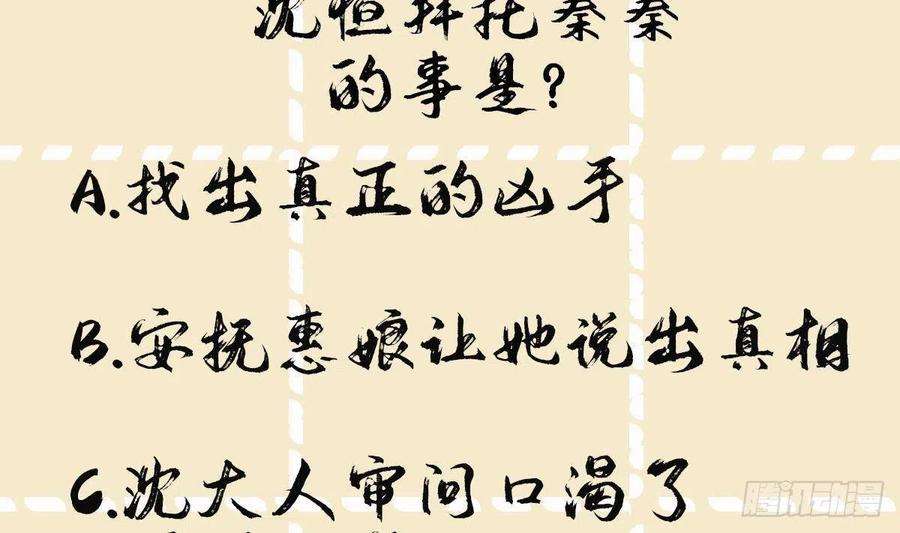 沈恒拜托秦秦
的事是?
A.找出真正的凶手
B.安抚惠娘让她说出真相
C.沈大人审问口渴了
腾讯动漫